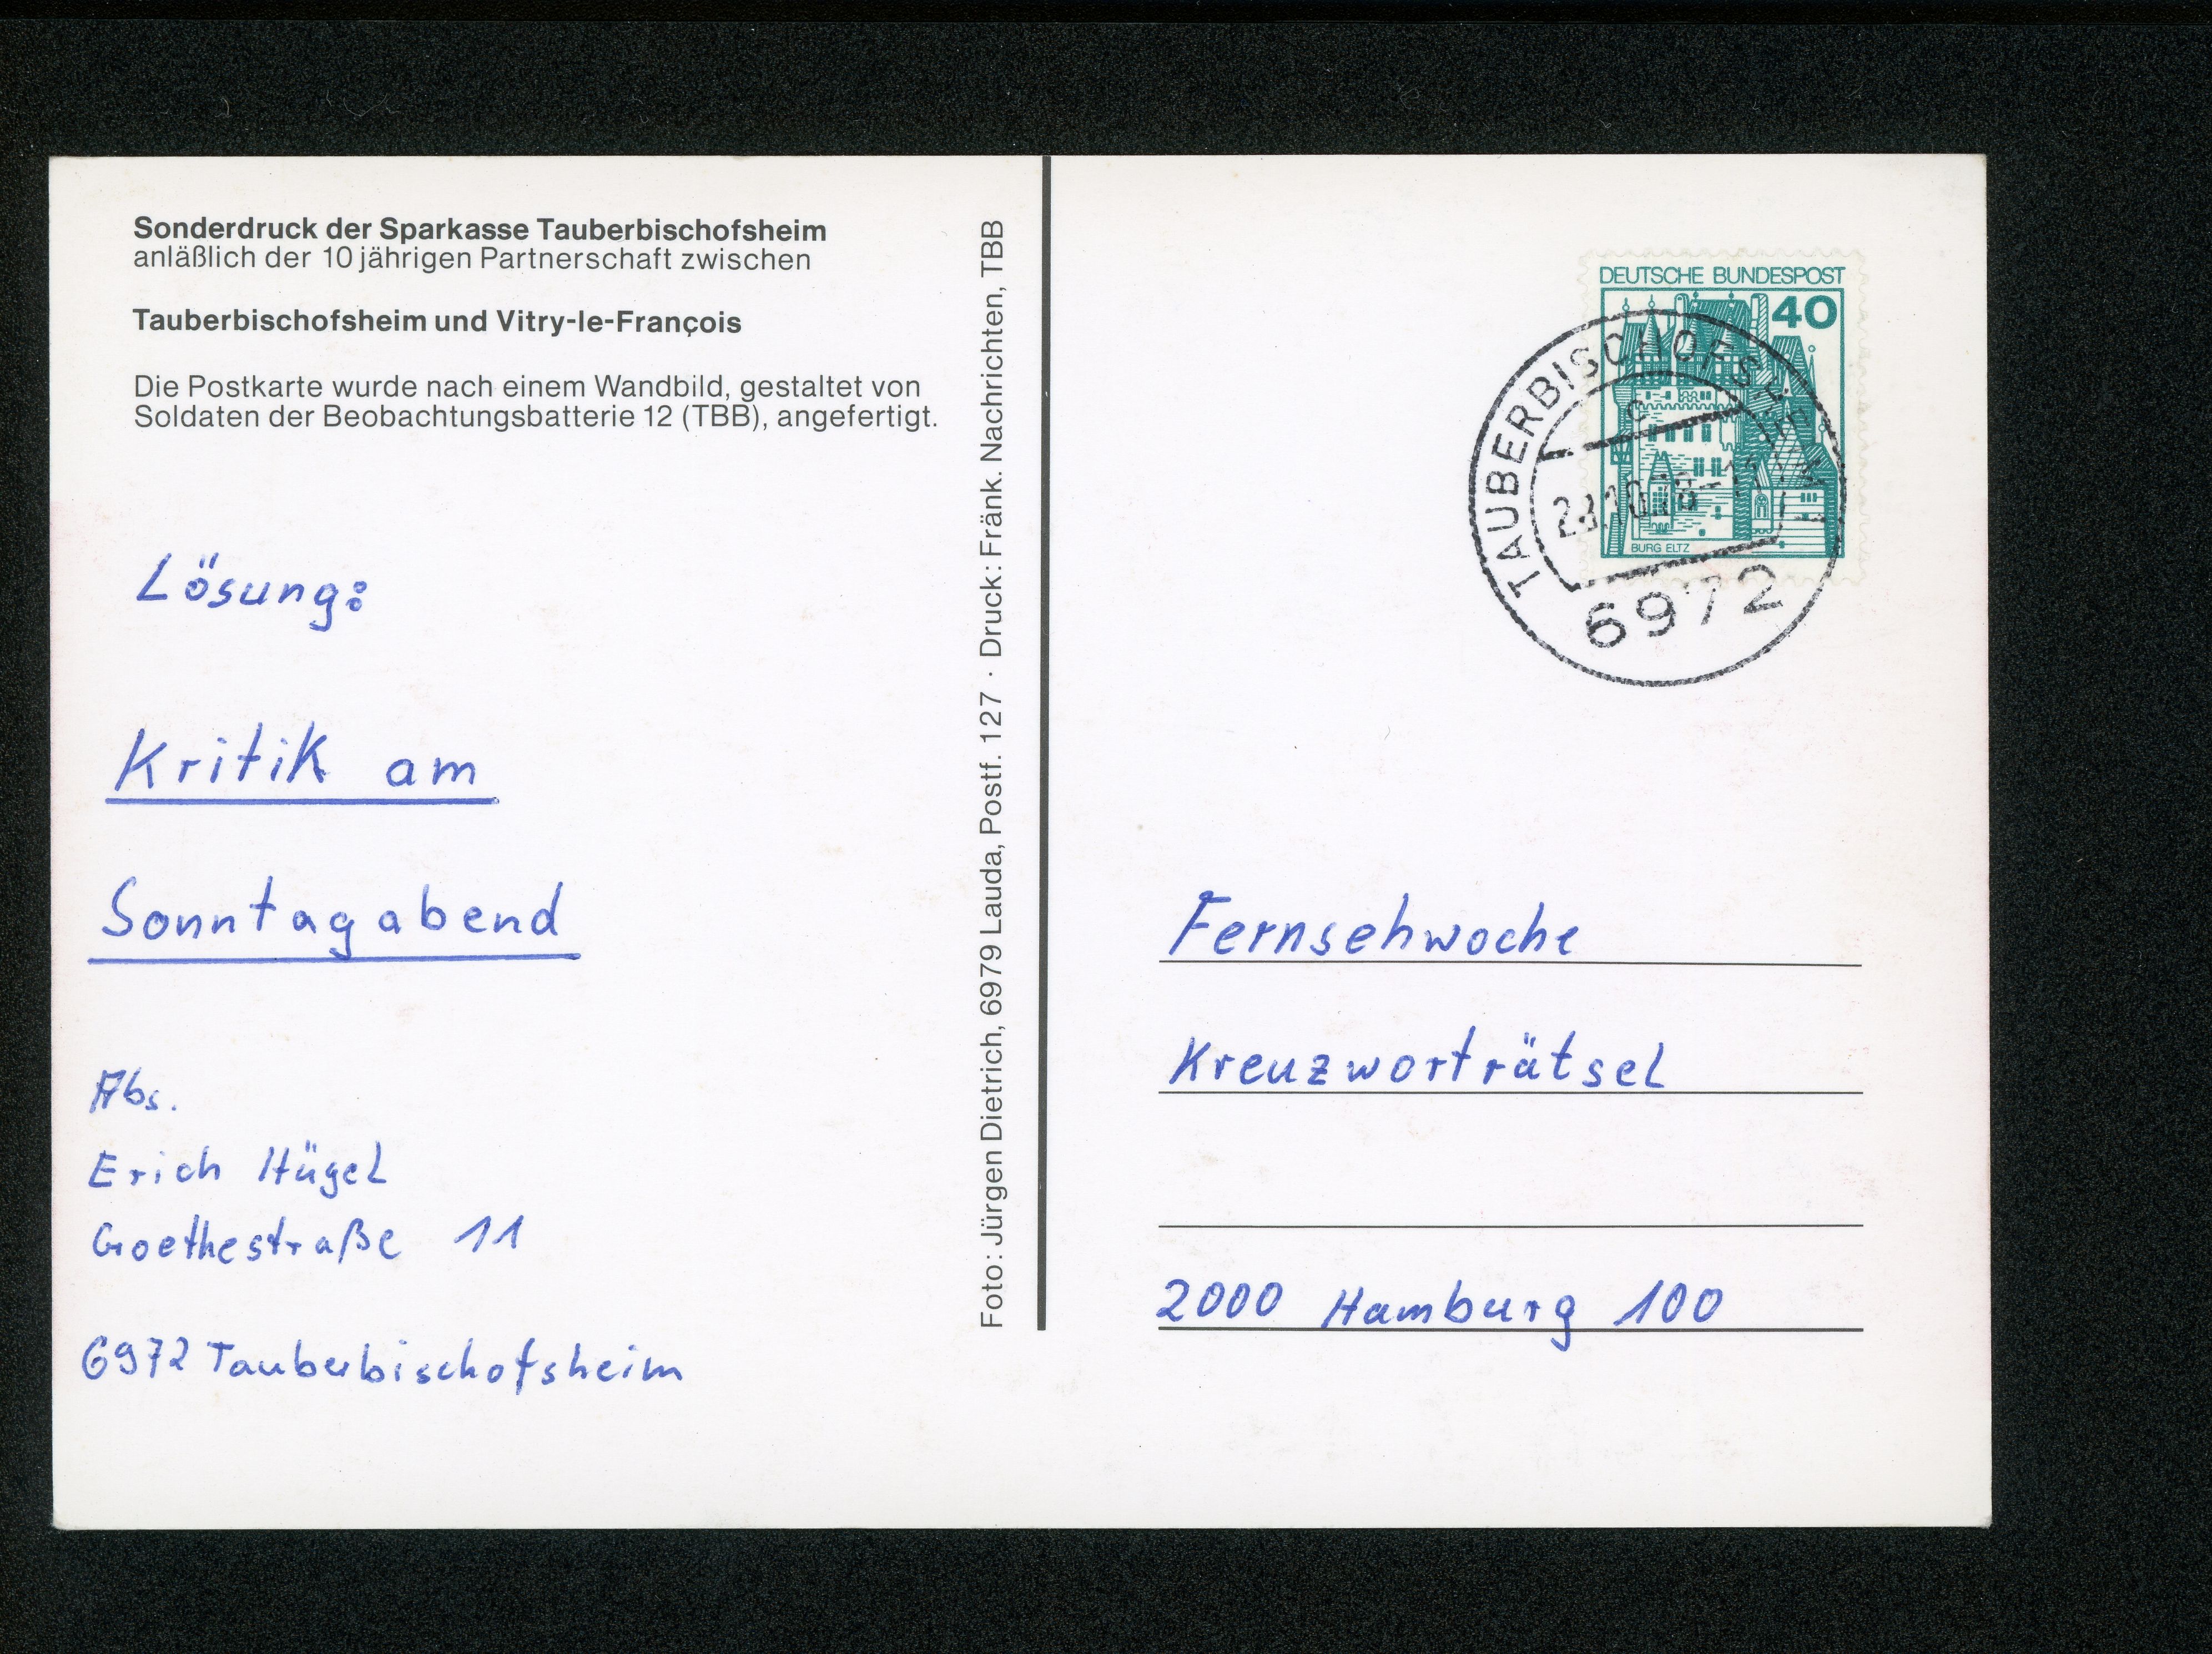 Sonderdruck der Sparkasse Tauberbischofsheim
anläßlich der 10 jährigen Partnerschaft zwischen
Tauberbischofsheim und Vitry-le-François
Die Postkarte wurde nach einem Wandbild, gestaltet von
Soldaten der Beobachtungsbatterie 12 (TBB), angefertigt.
Lösung:
Kritik am
Sonntagabend
Abs.
Erich Hügel
Goethestraße 11
6972 Tauberbischofsheim
Foto: Jürgen Dietrich, 6979 Lauda, Postf. 127 · Druck: Fränk. Nachrichten, TBB
DEUTSCHE BUNDESPOST
40
BURG ELTZ
TAUBERBISCHOFSHEIM 1
c
6972
Fernsehwoche
Kreuzworträtsel
2000 Hamburg 100